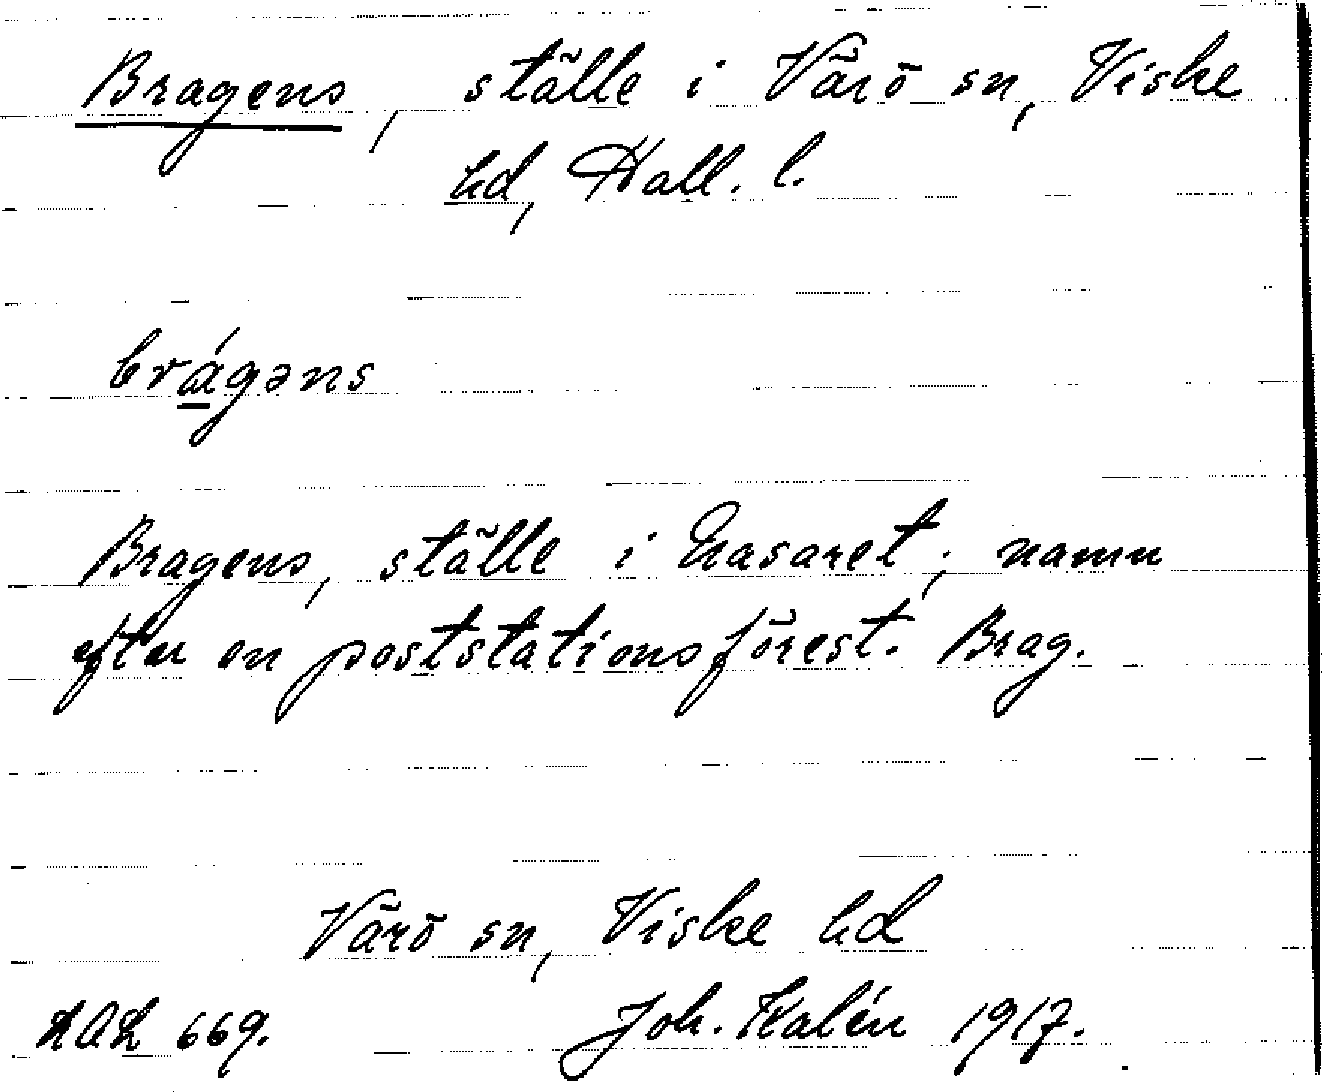 Bragens, ställe i Värö sn, Viske
hd, Hall. l.
brágəns
Bragens, ställe i Nasaret; namn
efter en poststationsförest. Brag.
Värö sn, Viske hd
Joh. Kalén 1917.
669.